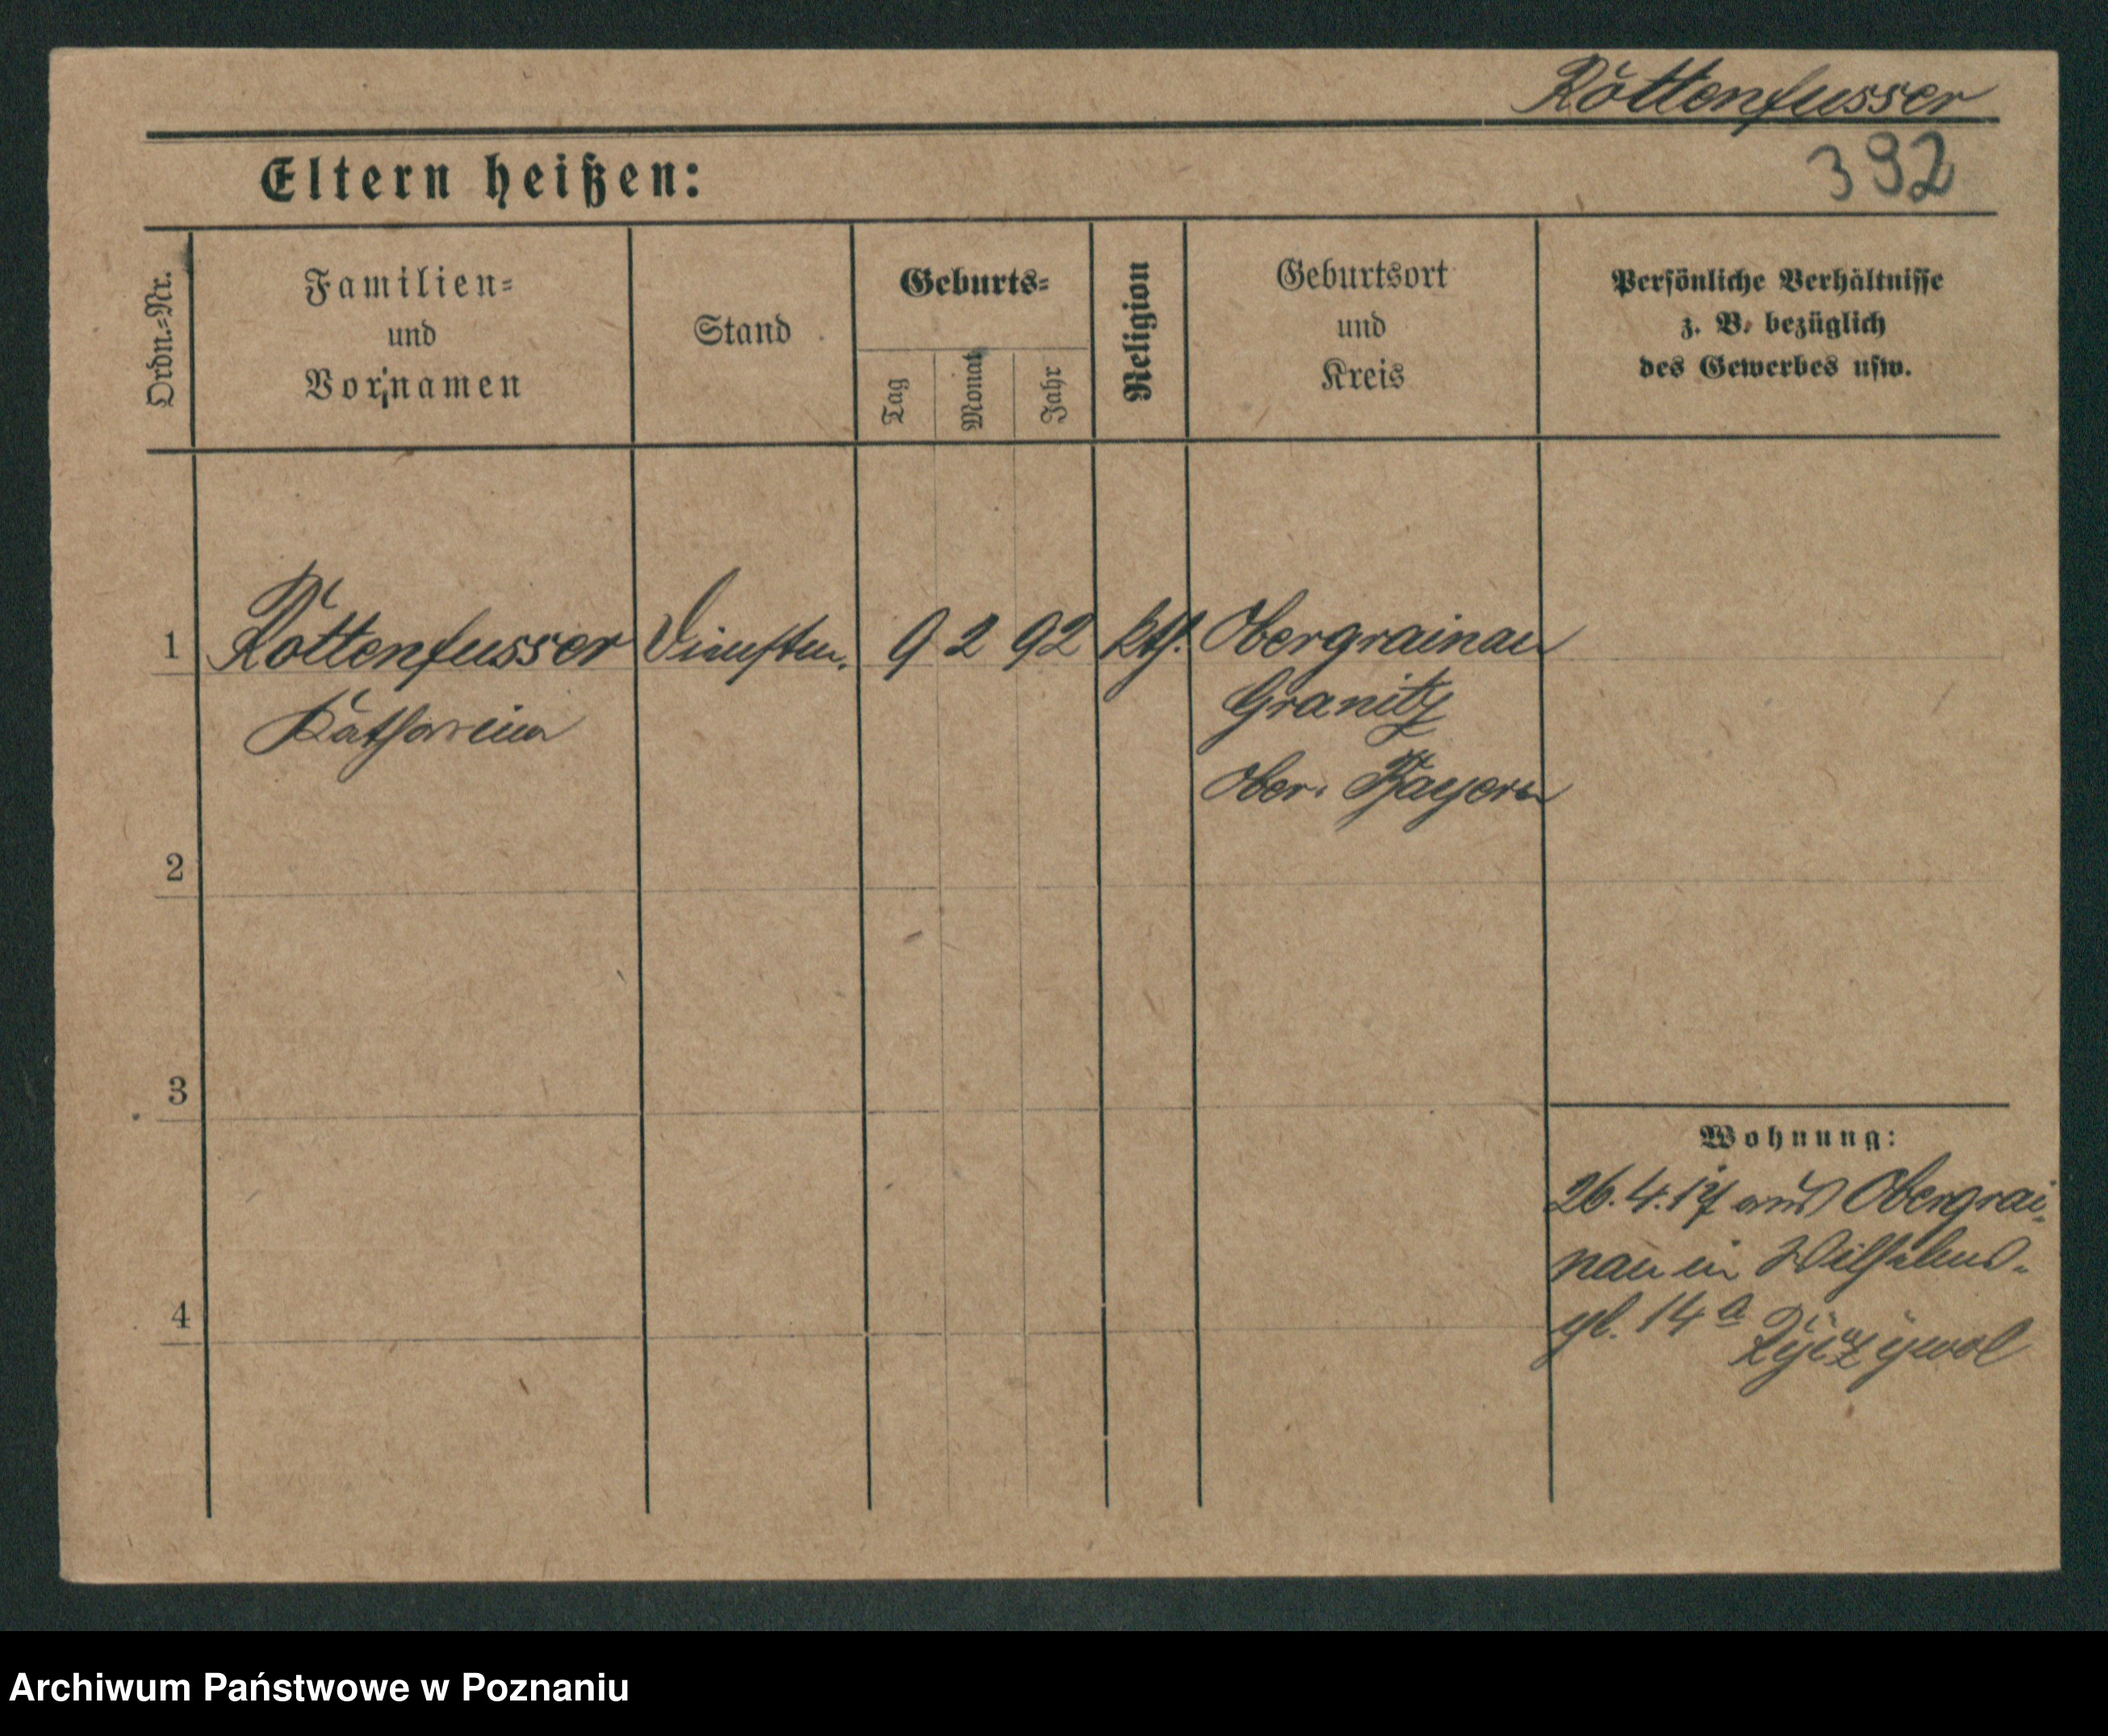 Röttenfusser
392
Eltern heißen:
Ordn.=Nr.
Familien=
und
Vornamen
Stand
Geburts=
Tag
Monat
Jahr
Religion
Geburtsort
und
Kreis
Persönliche Verhältnisse
z. B. bezüglich
des Gewerbes usw.
1 Röttenfusser 9 2 92 kth. Obergrainau
Katharina
Granitz
Ober. Bayern
2
3
4
Wohnung:
26.4.17 aus Obergrai-
nau in Wilhelms-
pl. 14a
Archiwum Państwowe w Poznaniu